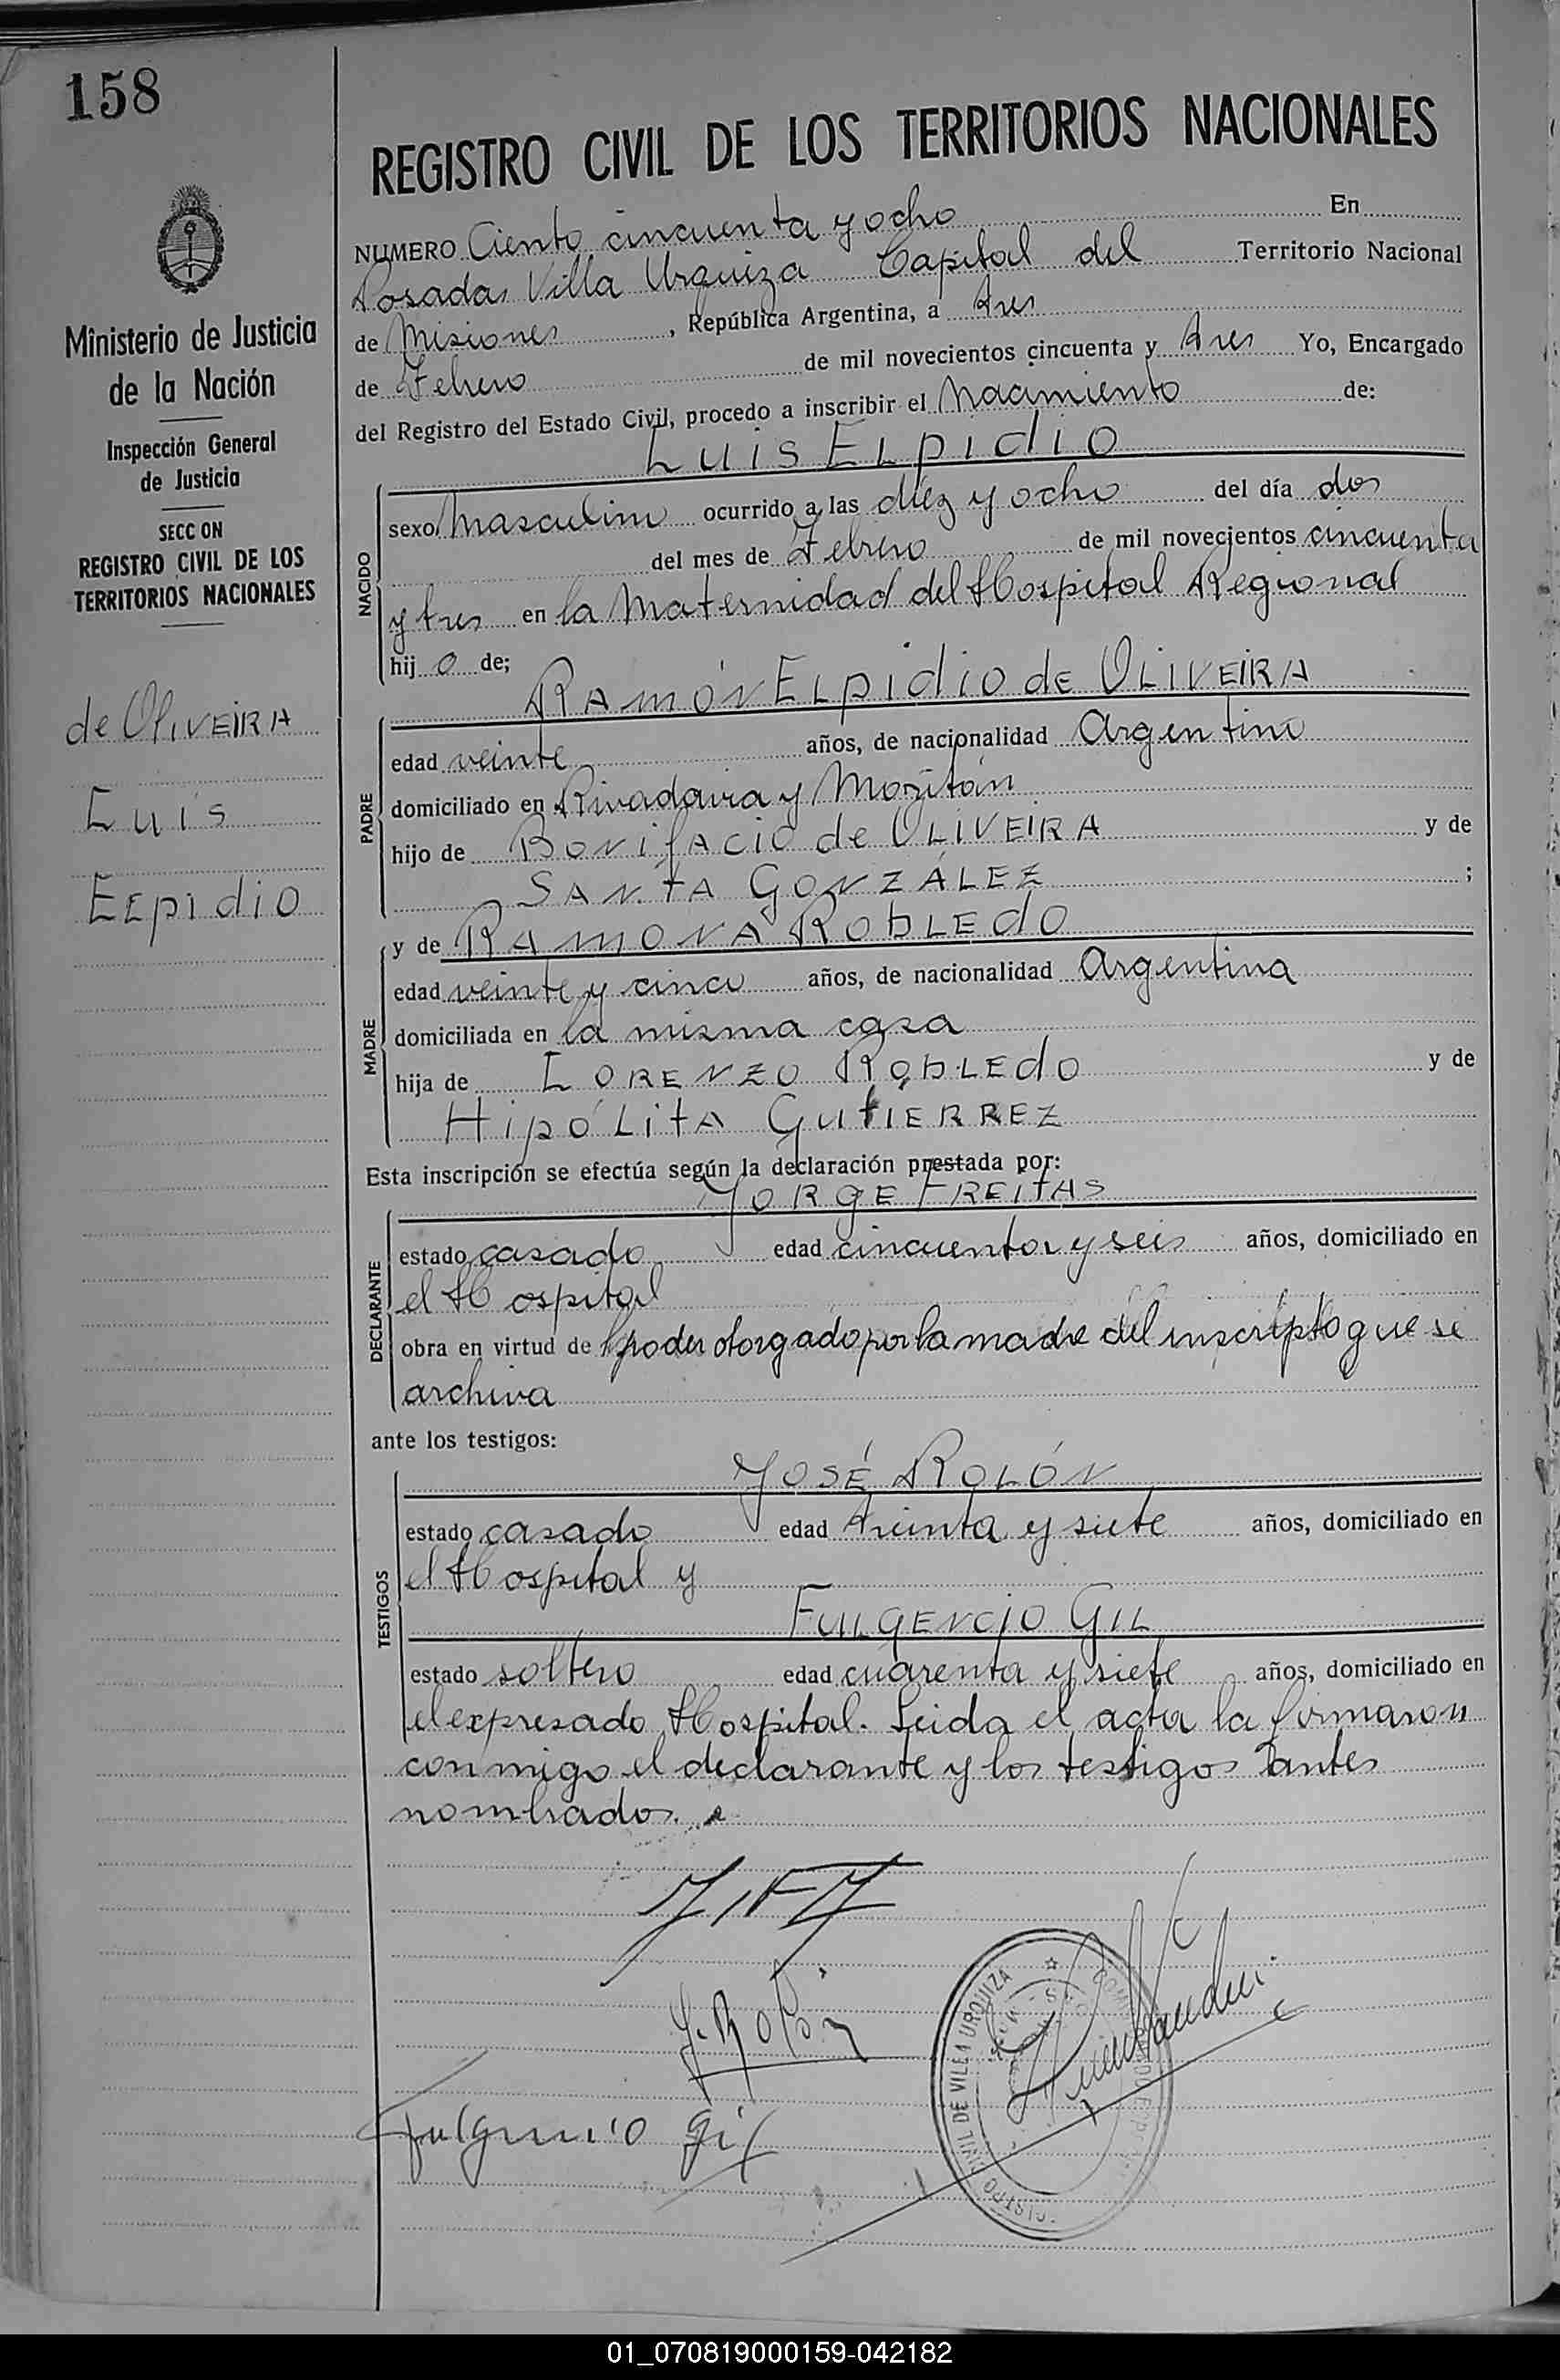 158
Ministerio de Justicia
de la Nación
Inspección General
de Justicia
SECC ON
REGISTRO CIVIL DE LOS
TERRITORIOS NACIONALES
de OLIVEIRA
Luis
ELpidio
REGISTRO CIVIL DE LOS TERRITORIOS NACIONALES
NUMERO Ciento cincuenta y ocho En
Posadas Villa Urquiza Capital del Territorio Nacional
de Misiones, República Argentina, a tres
de Febrero de mil novecientos cincuenta y tres Yo, Encargado
del Registro del Estado Civil, procedo a inscribir el Nacimiento de:
LUIS ELpidio
NACIDO
sexo Masculino ocurrido a las diez y ocho del día dos
del mes de Febrero de mil novecientos cincuenta
y tres en la Maternidad del Hospital Regional
hij o de;
RAMÓN ELpidio de OLIVEIRA
PADRE
edad veinte años, de nacionalidad Argentino
domiciliado en Rivadavia y
hijo de BONifACIO de OLIVEIRA y de
SANTA GONZÁLEZ ;
y de RAMONA RObLEdO
MADRE
edad veinte y cinco años, de nacionalidad Argentina
domiciliada en la misma casa
hija de LORENZO RObLEdO y de
HipÓLitA GUtIERREZ
Esta inscripción se efectúa según la declaración prestada por:
JORGE FREItAS
DECLARANTE
estado casado edad cincuenta y seis años, domiciliado en
el Hospital
obra en virtud de poder otorgado por la madre del inscripto que se
archiva
ante los testigos:
JOSÉ ROLÓN
TESTIGOS
estado casado edad treinta y siete años, domiciliado en
el Hospital y
FULGENCIO GIL
estado soltero edad cuarenta y siete años, domiciliado en
el expresado Hospital. Leida el acta la firmaron
conmigo el declarante y los testigos antes
nombrados.
J. Rolón
Fulgencio Gil
CIVIL DE VILLA URQUIZA
01_070819000159-042182